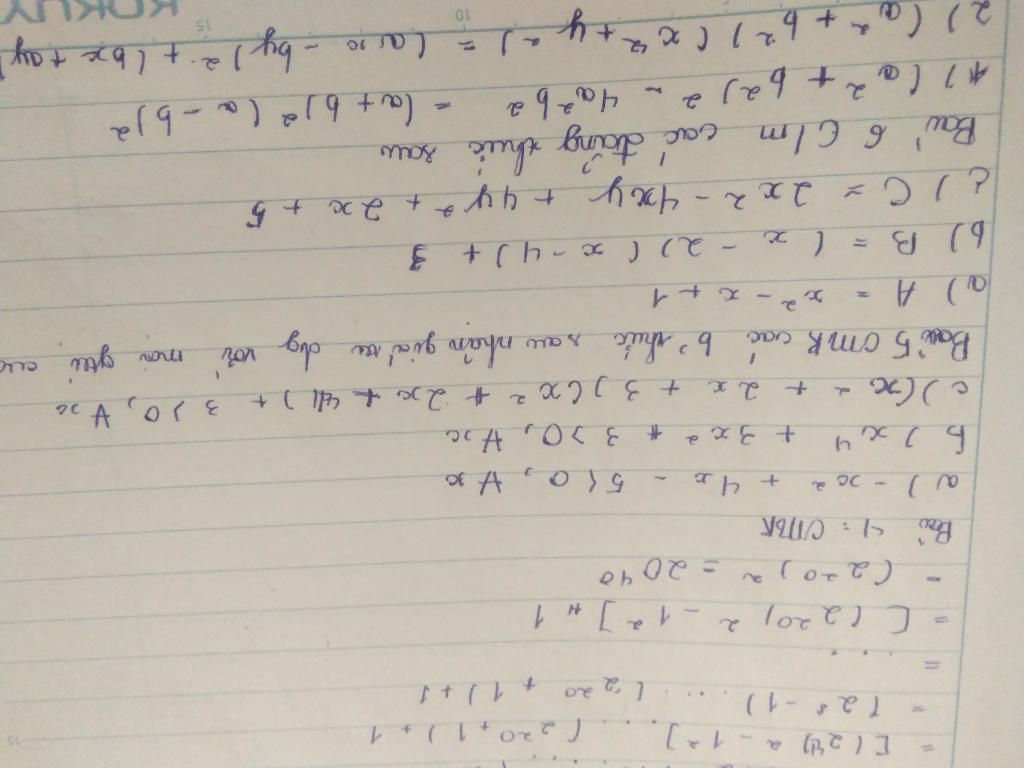 = [(2⁴)² - 1²] .... (2²⁰ + 1) + 1
= (2⁸ - 1) .... (2²⁰ + 1) + 1
= ....
= [(2²⁰)² - 1²] + 1
= (2²⁰)² = 2⁴⁰
Bài 4: CMR
a) - x² + 4x - 5 < 0, ∀x
b) x⁴ + 3x² + 3 > 0, ∀x
c) (x² + 2x + 3)(x² + 2x + 4) + 3 > 0, ∀x
Bài 5 CMR các b' thức sau nhận giá trị dg với mọi giá
a) A = x² - x + 1
b) B = (x - 2)(x - 4) + 3
c) C = 2x² - 4xy + 4y² + 2x + 5
Bài 6 C/m các đẳng thức sau
1) (a² + b²)² - 4a²b² = (a + b)² (a - b)²
2) (a² + b²)(x² + y²) = (ax - by)² + (bx + ay)
KOKUY
15
10
15